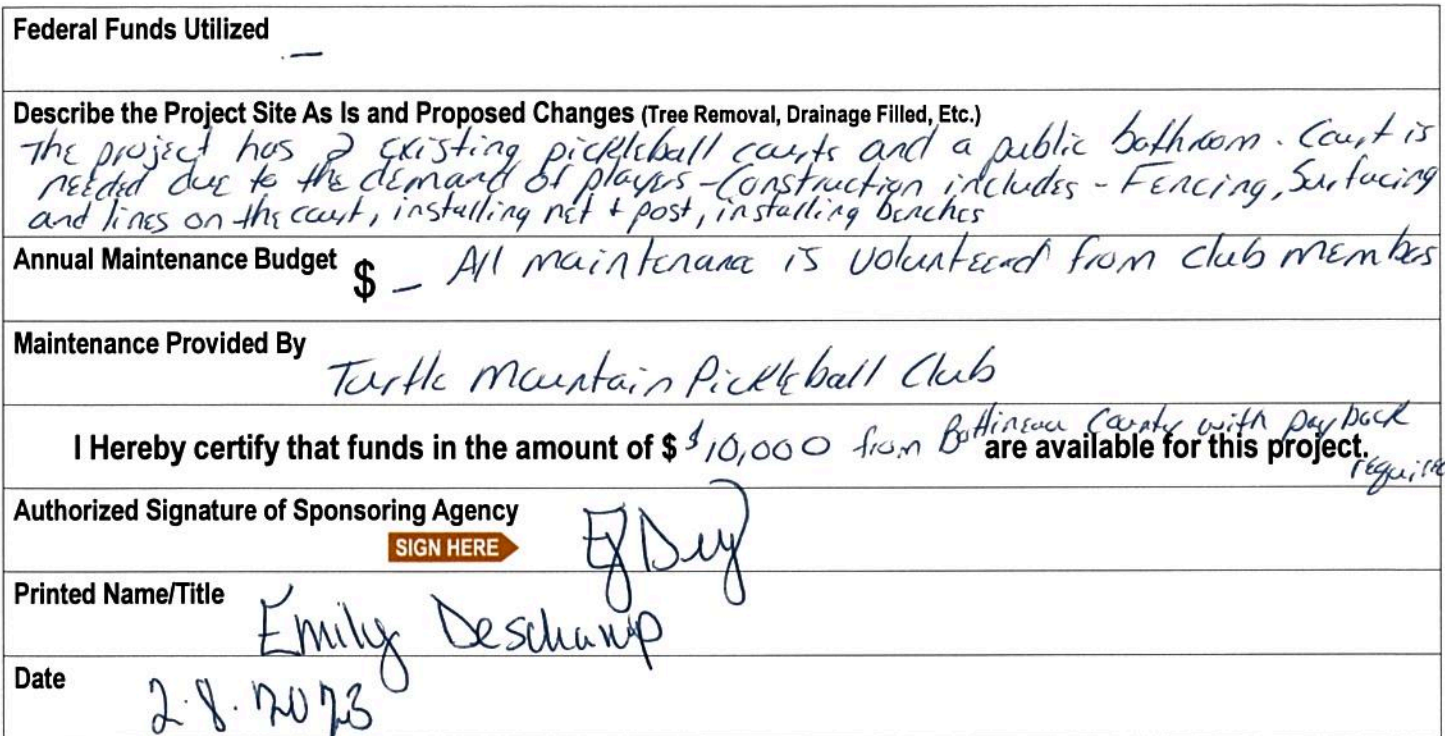 Federal Funds Utilized
—
Describe the Project Site As Is and Proposed Changes (Tree Removal, Drainage Filled, Etc.)
The project has 2 existing pickleball courts and a public bathroom. Court is
needed due to the demand of players - Construction includes - Fencing, Surfacing
and lines on the court, installing net + post, installing benches
Annual Maintenance Budget $ — All maintenance is volunteered from club members
Maintenance Provided By
Turtle Mountain Pickleball Club
I Hereby certify that funds in the amount of $ $10,000 from Bottineau County with pay back required are available for this project.
Authorized Signature of Sponsoring Agency
SIGN HERE
Printed Name/Title
Emily Deschamp
Date
2.8.2023